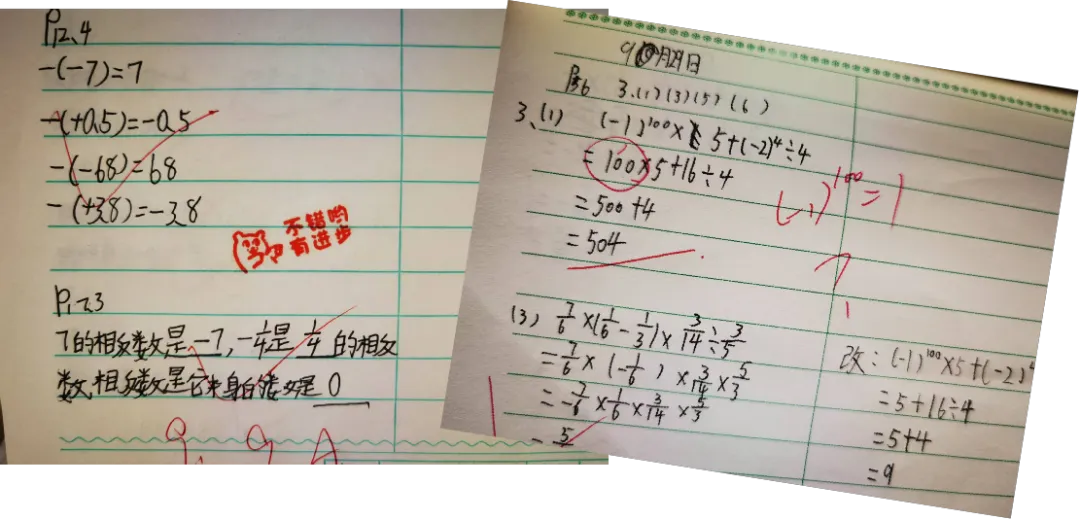 P12、4
-(-7)=7
-(+0.5)=-0.5
-(-68)=68
-(+3.8)=-3.8
不错哟
有进步
P12、3
7的相反数是 -7，-1/4是 1/4 的相反
数，相反数是它本身的数是 0
9. 9 A
9月29日
P56 3.(1)(3)(5)(6)
3、(1) (-1)¹⁰⁰× 5+(-2)⁴÷4
=100×5+16÷4
=500+4
=504
(-1)¹⁰⁰=1
(3) 7/6×(1/6-1/3)×3/14÷3/5
=7/6×(-1/6)×3/14×5/3
=-7/6×1/6×3/14×5/3
改：(-1)¹⁰⁰×5+(-2)⁴
=5+16÷4
=5+4
=9